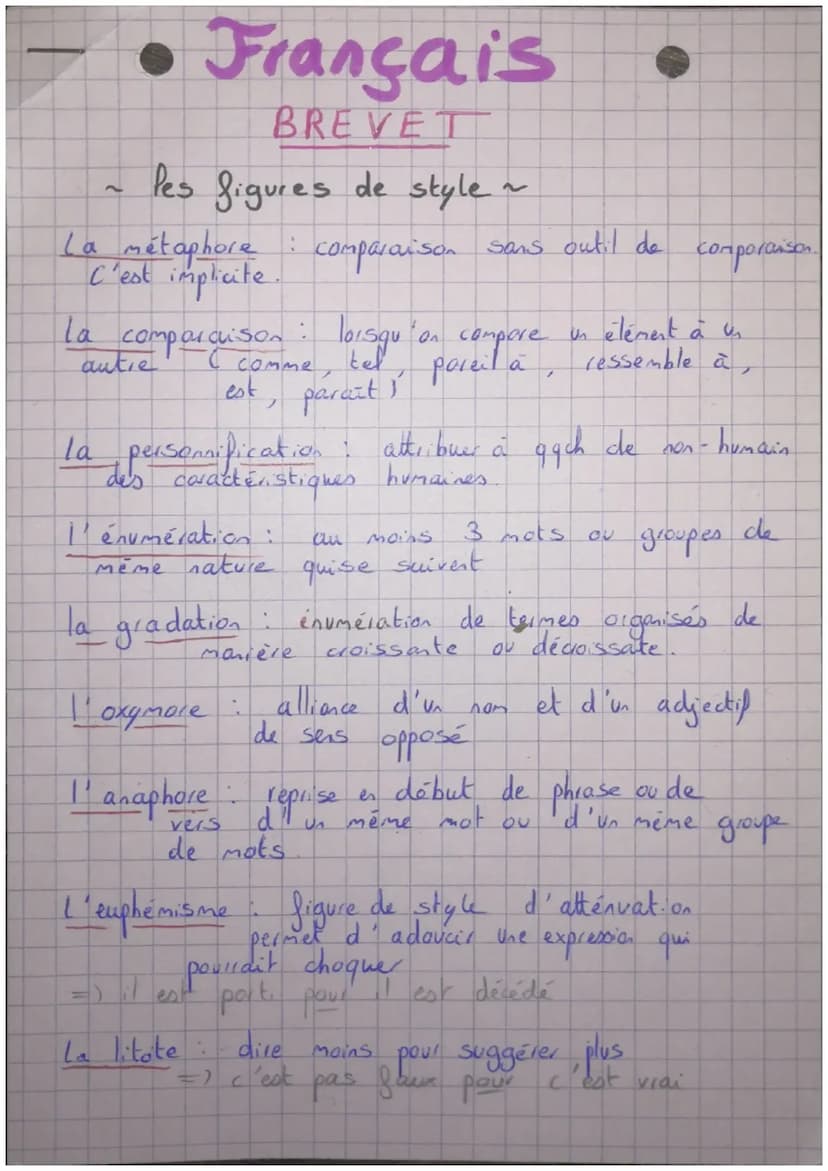 Français
BREVET
~ les figures de style ~
La métaphore : comparaison sans outil de comparaison.
C'est implicite.
la comparaison : lorsqu'on compare un élément à un
autre ( comme, tel, pareil à, ressemble à,
est, paraît )
la personnification : attribuer à qqch de non-humain
des caractéristiques humaines.
l'énumération : au moins 3 mots ou groupes de
même nature qui se suivent
la gradation : énumération de termes organisés de
manière croissante ou décroissate.
l'oxymore : alliance d'un nom et d'un adjectif
de sens opposé
l'anaphore : reprise en début de phrase ou de
vers d'un même mot ou d'un même groupe
de mots
L'euphémisme : figure de style d'atténuation
permet d'adoucir une expression qui
pourrait choquer
=> il est parti pour il est décédé
La litote : dire moins pour suggérer plus
=> c'est pas faux pour c'est vrai